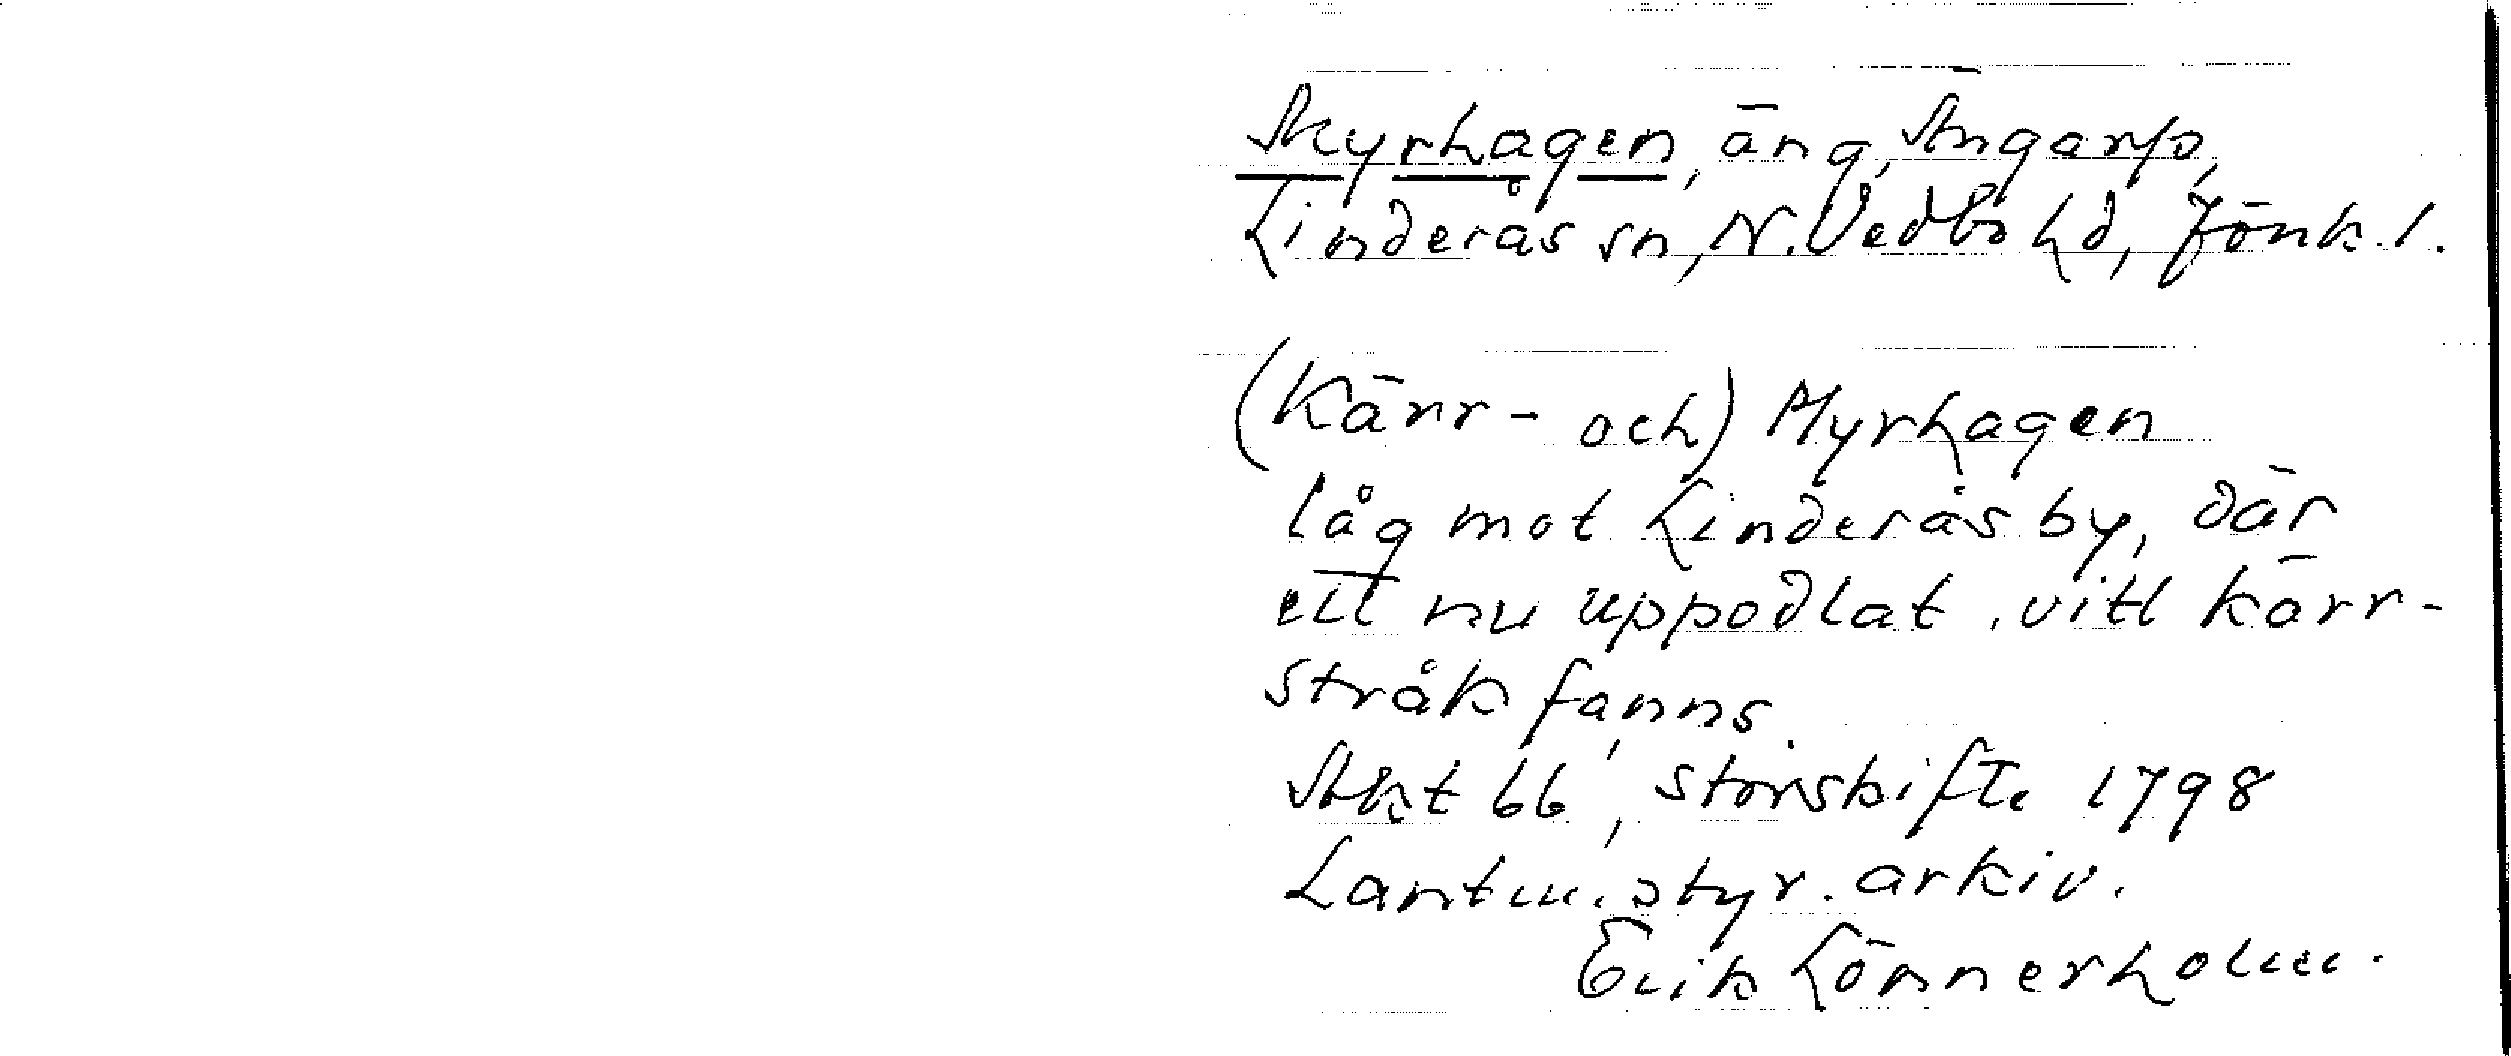 Myrhagen, äng, Ängarp,
Linderås sn, N. Vedbo hd, Jönk. l.
(Kärr- och) Myrhagen
låg mot Linderås by, där
ett nu uppodlat, vitt kärr-
stråk fanns.
Akt 66, storskifte 1798
Lantm. styr. arkiv.
Erik Lönnerholm.